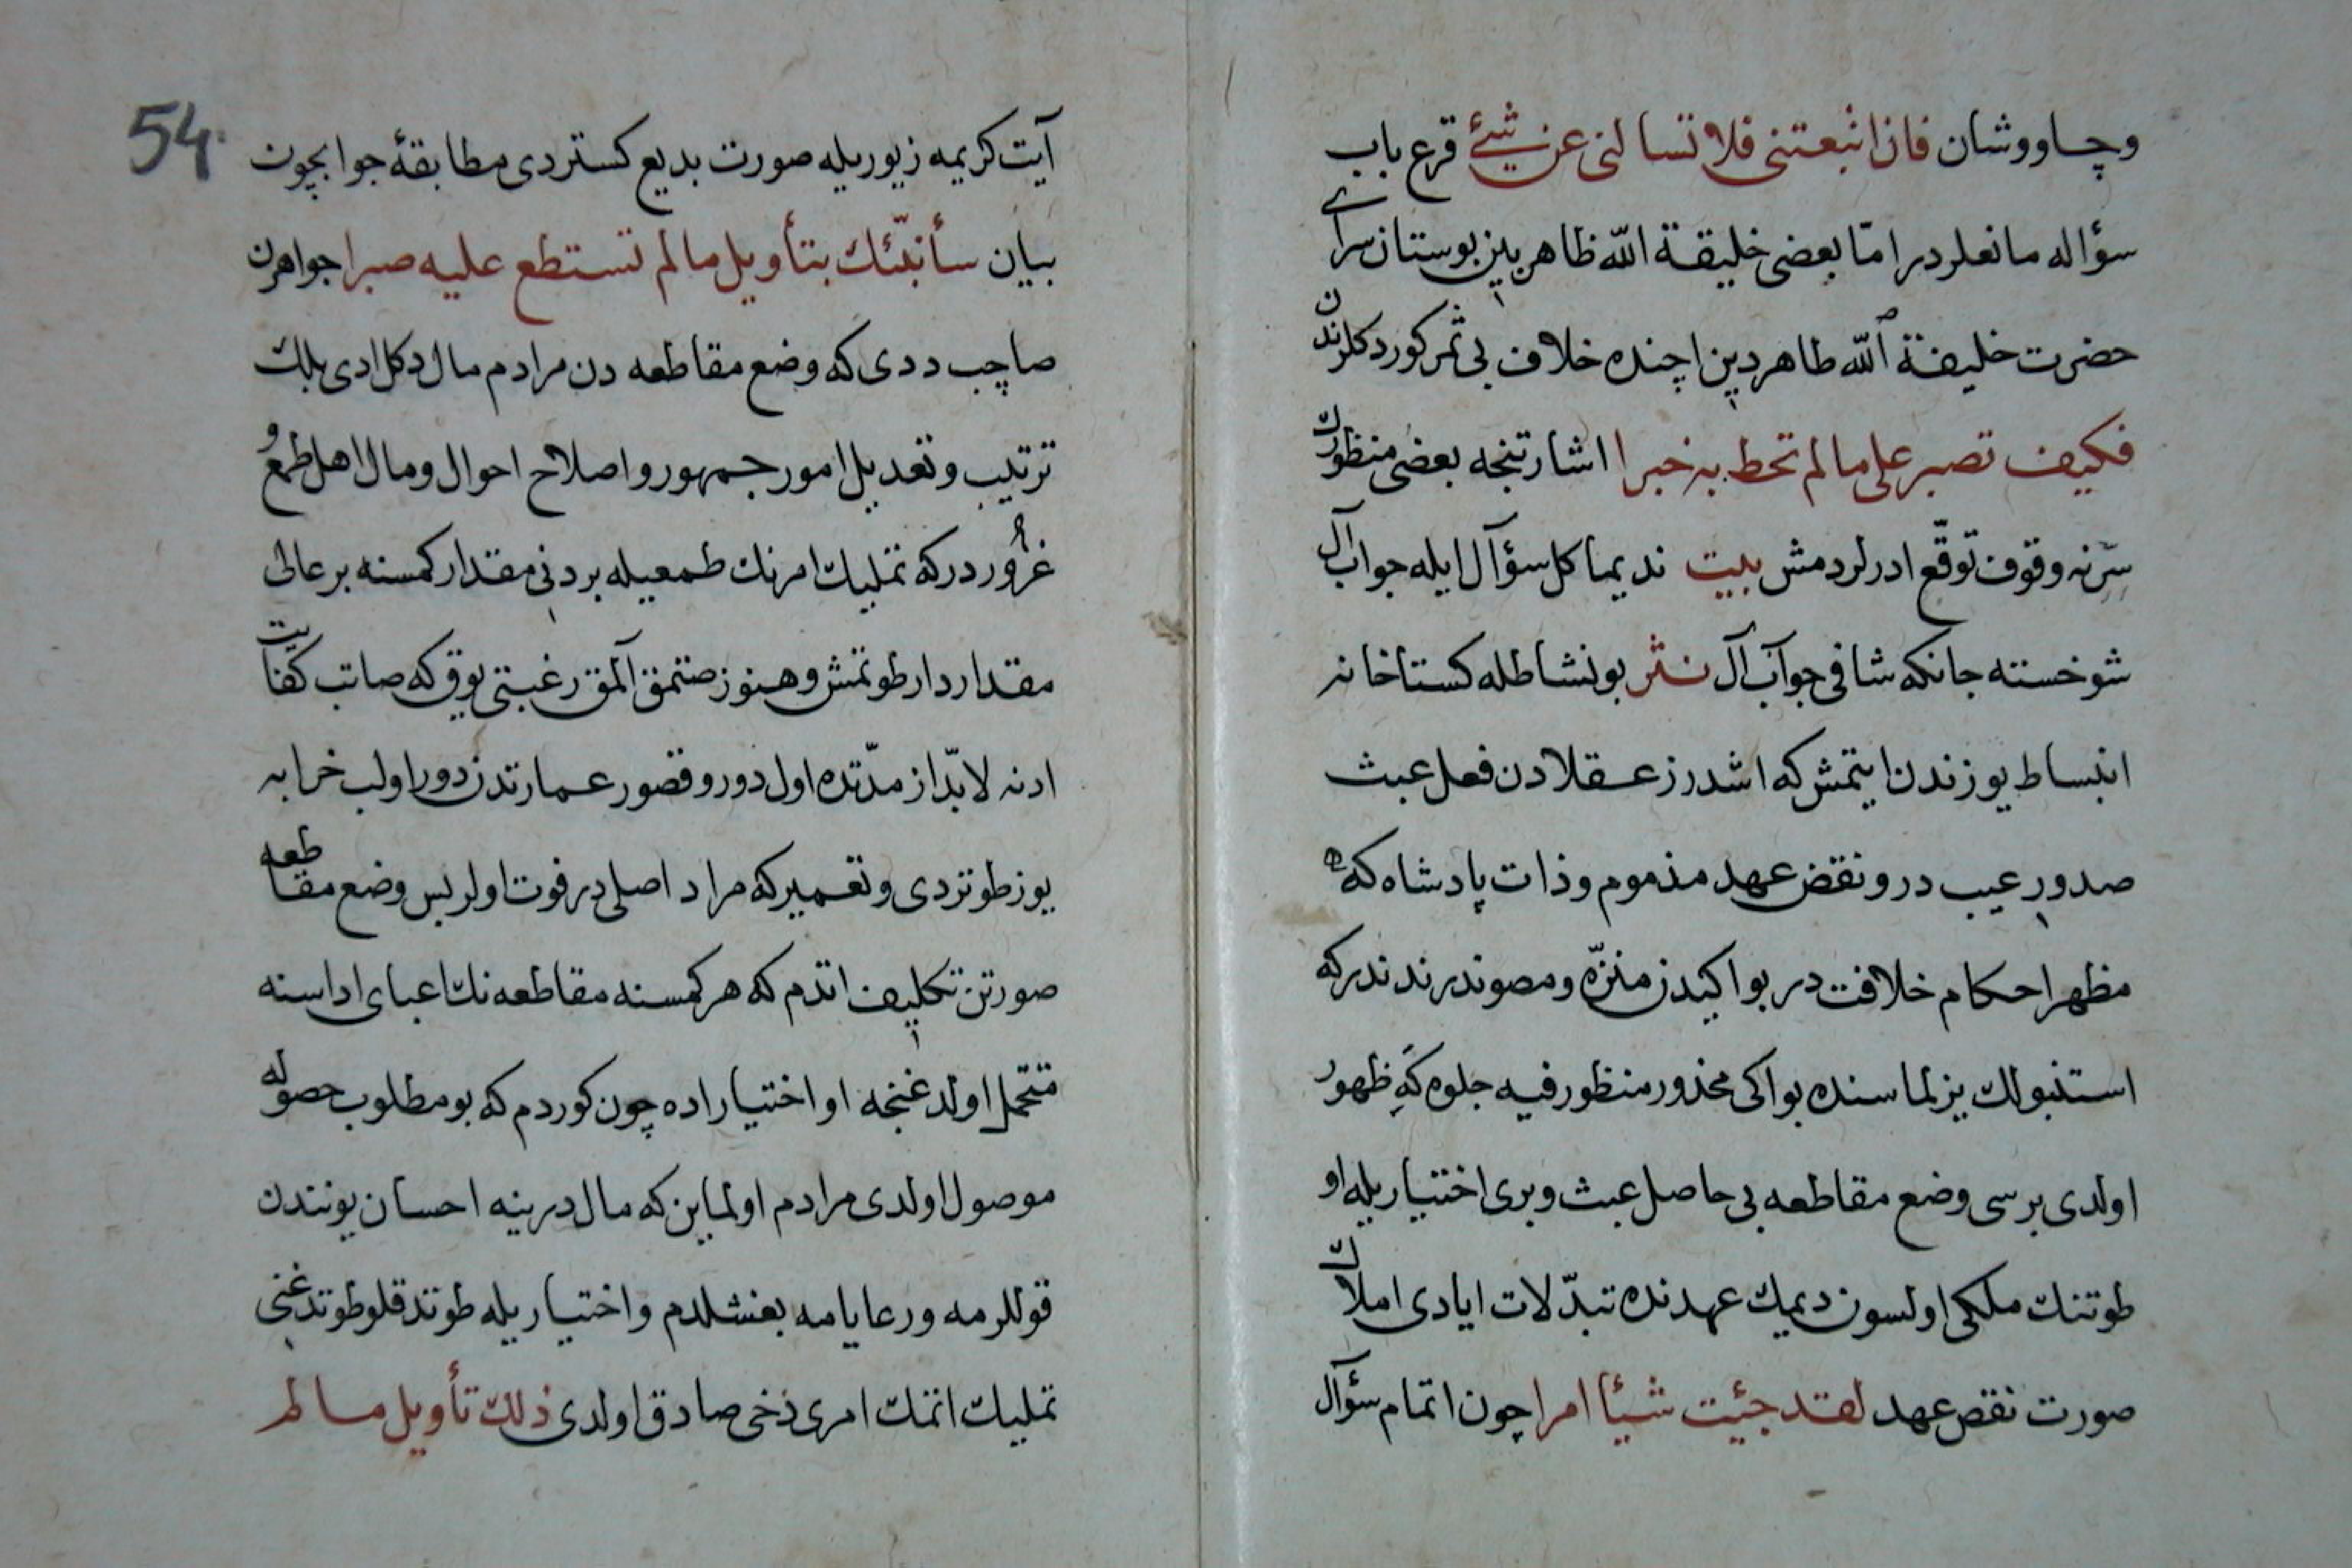 وچاووشان فان اتبعتنی فلا تسالنی عن شیٔ قرع باب
سؤاله مانعلردر امّا بعضی خلیقة اللّه ظاهر بین بوستان سرای
حضرت خلیفة اللّه طاهر دین اچنده خلاف بی ثمر کوردکلرندن
فکیف تصبر علی مالم تحط به خبرا اشارتنجه بعضی منظورك
سرّنه وقوف توقّع ادرلردمش بیت ندیما کل سؤآل ایله جواب آل
شو خسته جانکه شافی جواب آل نثر بو نشاطله کستاخانه
انبساط یوزندن ایتمش که اشدر ز عقلادن فعل عبث
صدور عیب در ونقض عهد مذموم وذات پادشاه که
مظهر احکام خلافت در بو ایکیدن منزّه ومصوندر ندندر که
استنبولك یزلماسنده بو اکی محذور منظور فیه جلوه که ظهور
اولدی برسی وضع مقاطعه بی حاصل عبث وبری اختیاریله او
طوتنك ملکی اولسون دیمك عهدنده تبدّلات ایادی املاك
صورت نقض عهد لقد جئت شیٔا امرا چون اتمام سؤآل
54
آیت کریمه زیوریله صورت بدیع کستردی مطابقهٔ جوابچون
بیان سأنبّئك بتأویل مالم تستطع علیه صبرا جواهرن
صاچب ددی که وضع مقاطعه دن مرادم مال دکل ادی بلك
ترتیب وتعدیل امور جمهور واصلاح احوال ومال اهل طمع و
غرور در که تملیك امرنك طمعیله بر دنی مقدار کمسنه بر عالی
مقدار دار طوتمش وهنوز صتمق آلمق رغبتی یوق که صاتب کفایت
ادنه لابدّ از مدّتده اول دور وقصور عمارتدن دور اولب خرابه
یوز طوتردی وتعمیر که مراد اصلی در فوت اولر بس وضع مقاطعه
صورتن تکلیف اتدم که هر کمسنه مقاطعه نك اعبای اداسنه
متحمل اولدغنجه او اختیار اده چون کوردم که بو مطلوب حصوله
موصول اولدی مرادم اولماین که مال در ینه احسان یونندن
قوللرمه ورعایامه بغشلدم واختیاریله طوتدقلو طوتدغنی
تملیك اتمك امری دخی صادق اولدی ذلك تأویل مالم